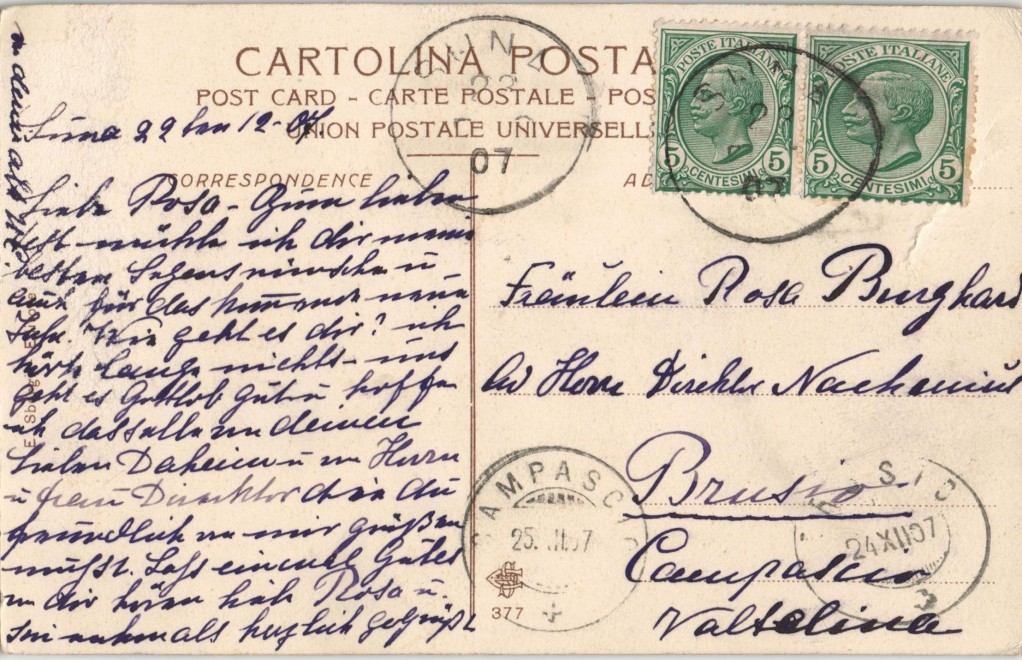 CARTOLINA POSTA
POST CARD - CARTE POSTALE - POS
UNION POSTALE UNIVERSELL
CORRESPONDENCE
AD
POSTE ITALIANE
5 CENTESIMI 5
POSTE ITALIANE
5 CENTESIMI 5
07
07
22 12-07
Liebe Rosa -
ich dir meine
besten Segenswünsche u
für das neue
Jahr. Wie geht es dir? ich
hörte lange nichts - uns
geht es Gottlob gut u hoffe
ich dasselbe von deinen
Lieben Daheim u von Herrn
u frau Direktor die du
freundlich von mir grüßen
mußt. Laß einmal Gutes
von dir hören liebe Rosa u.
sei nochmals herzlich gegrüßt
von deiner alt
Fräulein Rosa Burghard
Herrn Direktor
Brusio
Campascio
Valtelina
CAMPASCIO
25. XII.07
BRUSIO
24 XII 07
377